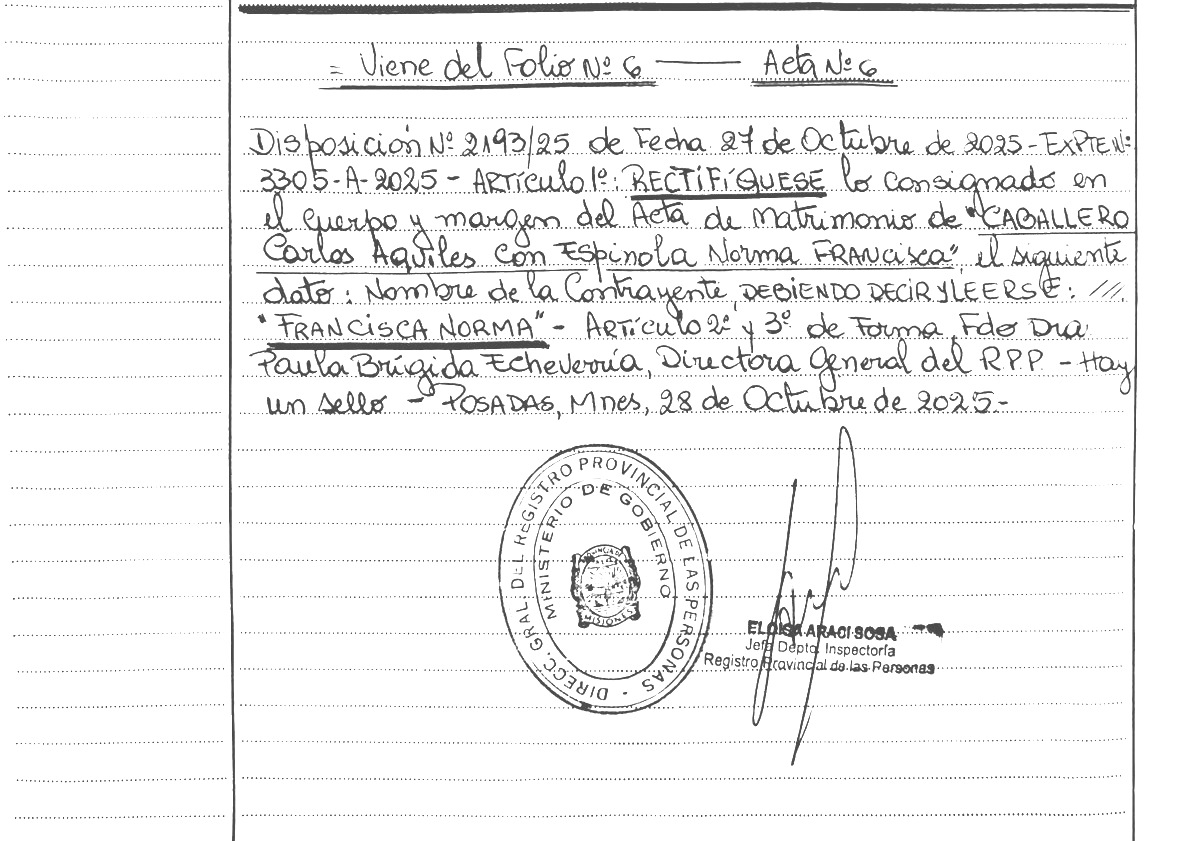 = Viene del Folio Nº 6 —— Acta Nº 6
Disposición Nº 2193/25 de Fecha 27 de Octubre de 2025 - EXPTE Nº:
3305-A-2025 - ARTÍCULO 1º: RECTIFÍQUESE lo consignado en
el cuerpo y margen del Acta de Matrimonio de "CABALLERO
Carlos Aquiles con Espínola Norma FRANCISCA", el siguiente
dato: Nombre de la Contrayente, DEBIENDO DECIR Y LEERSE: ///.
"FRANCISCA NORMA" - Artículo 2º y 3º de Forma. Fdo Dra
Paula Brígida Echeverría, Directora General del R.P.P. - Hay
un sello - POSADAS, Mnes, 28 de Octubre de 2025.-
DIRECC. GRAL. DEL REGISTRO PROVINCIAL DE LAS PERSONAS -
MINISTERIO DE GOBIERNO
PROVINCIA DE
MISIONES
ELOISA ARACI SOSA
Jefa Dpto. Inspectoría
Registro Provincial de las Personas